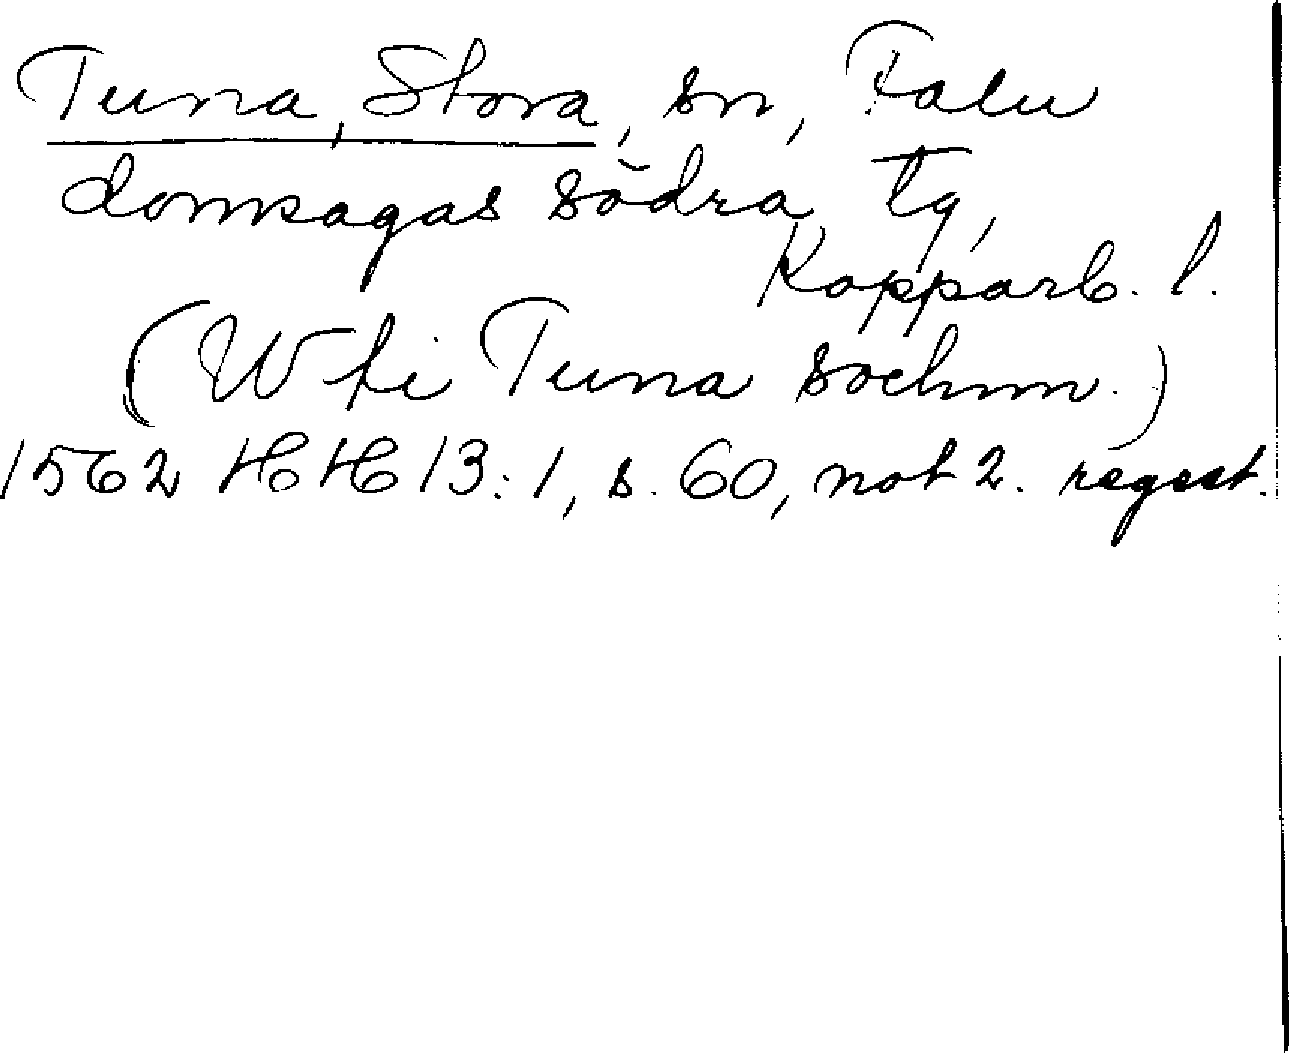 Tuna, Stora, sn, Falu
domsagas södra tg,
Kopparb. l.
(W fi Tuna sochnn.)
1562 HH 13:1, s. 60, not 2. regest.